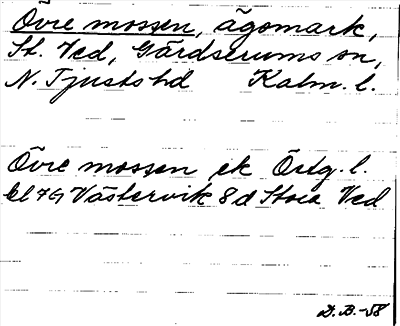 Övre mossen, ägomark,
St. Ved, Gärdserums sn,
N. Tjusts hd Kalm. l.
Övre mossen ek Östg. l.
bl 7G Västervik 8 d Stora Ved
D. B. -58